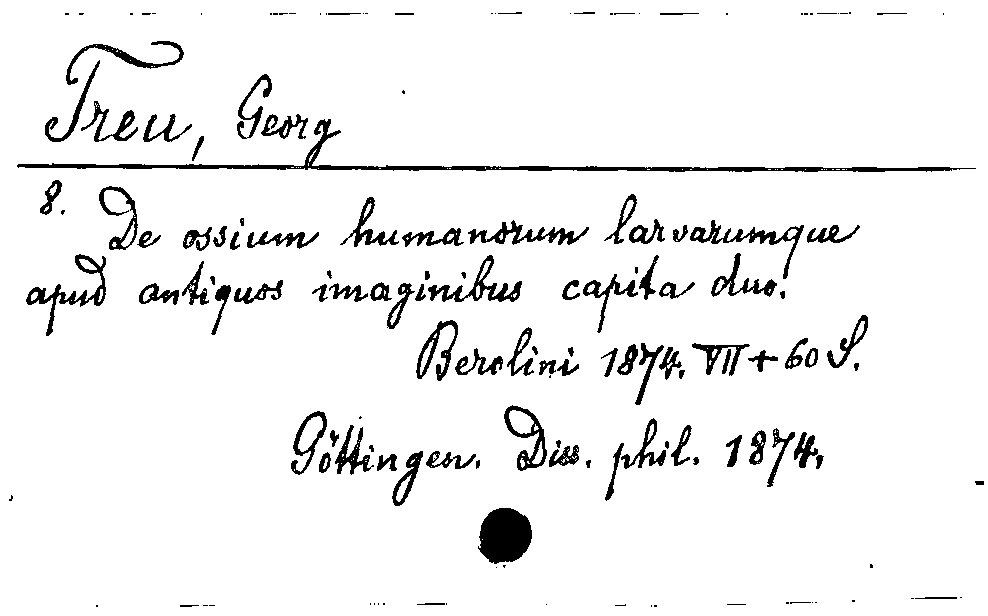 Treu, Georg
8. De ossium humanorum larvarumque
apud antiquos imaginibus capita duo.
Berolini 1874. VII + 60 S.
Göttingen. Diss. phil. 1874.